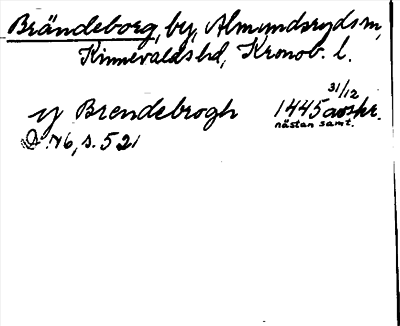 Brändeborg, by, Almundsryds sn,
Kinnevalds hd, Kronob. l.
31/12
y Brendebrogh 1445 avskr.
nästan samt.
D 76, s. 521